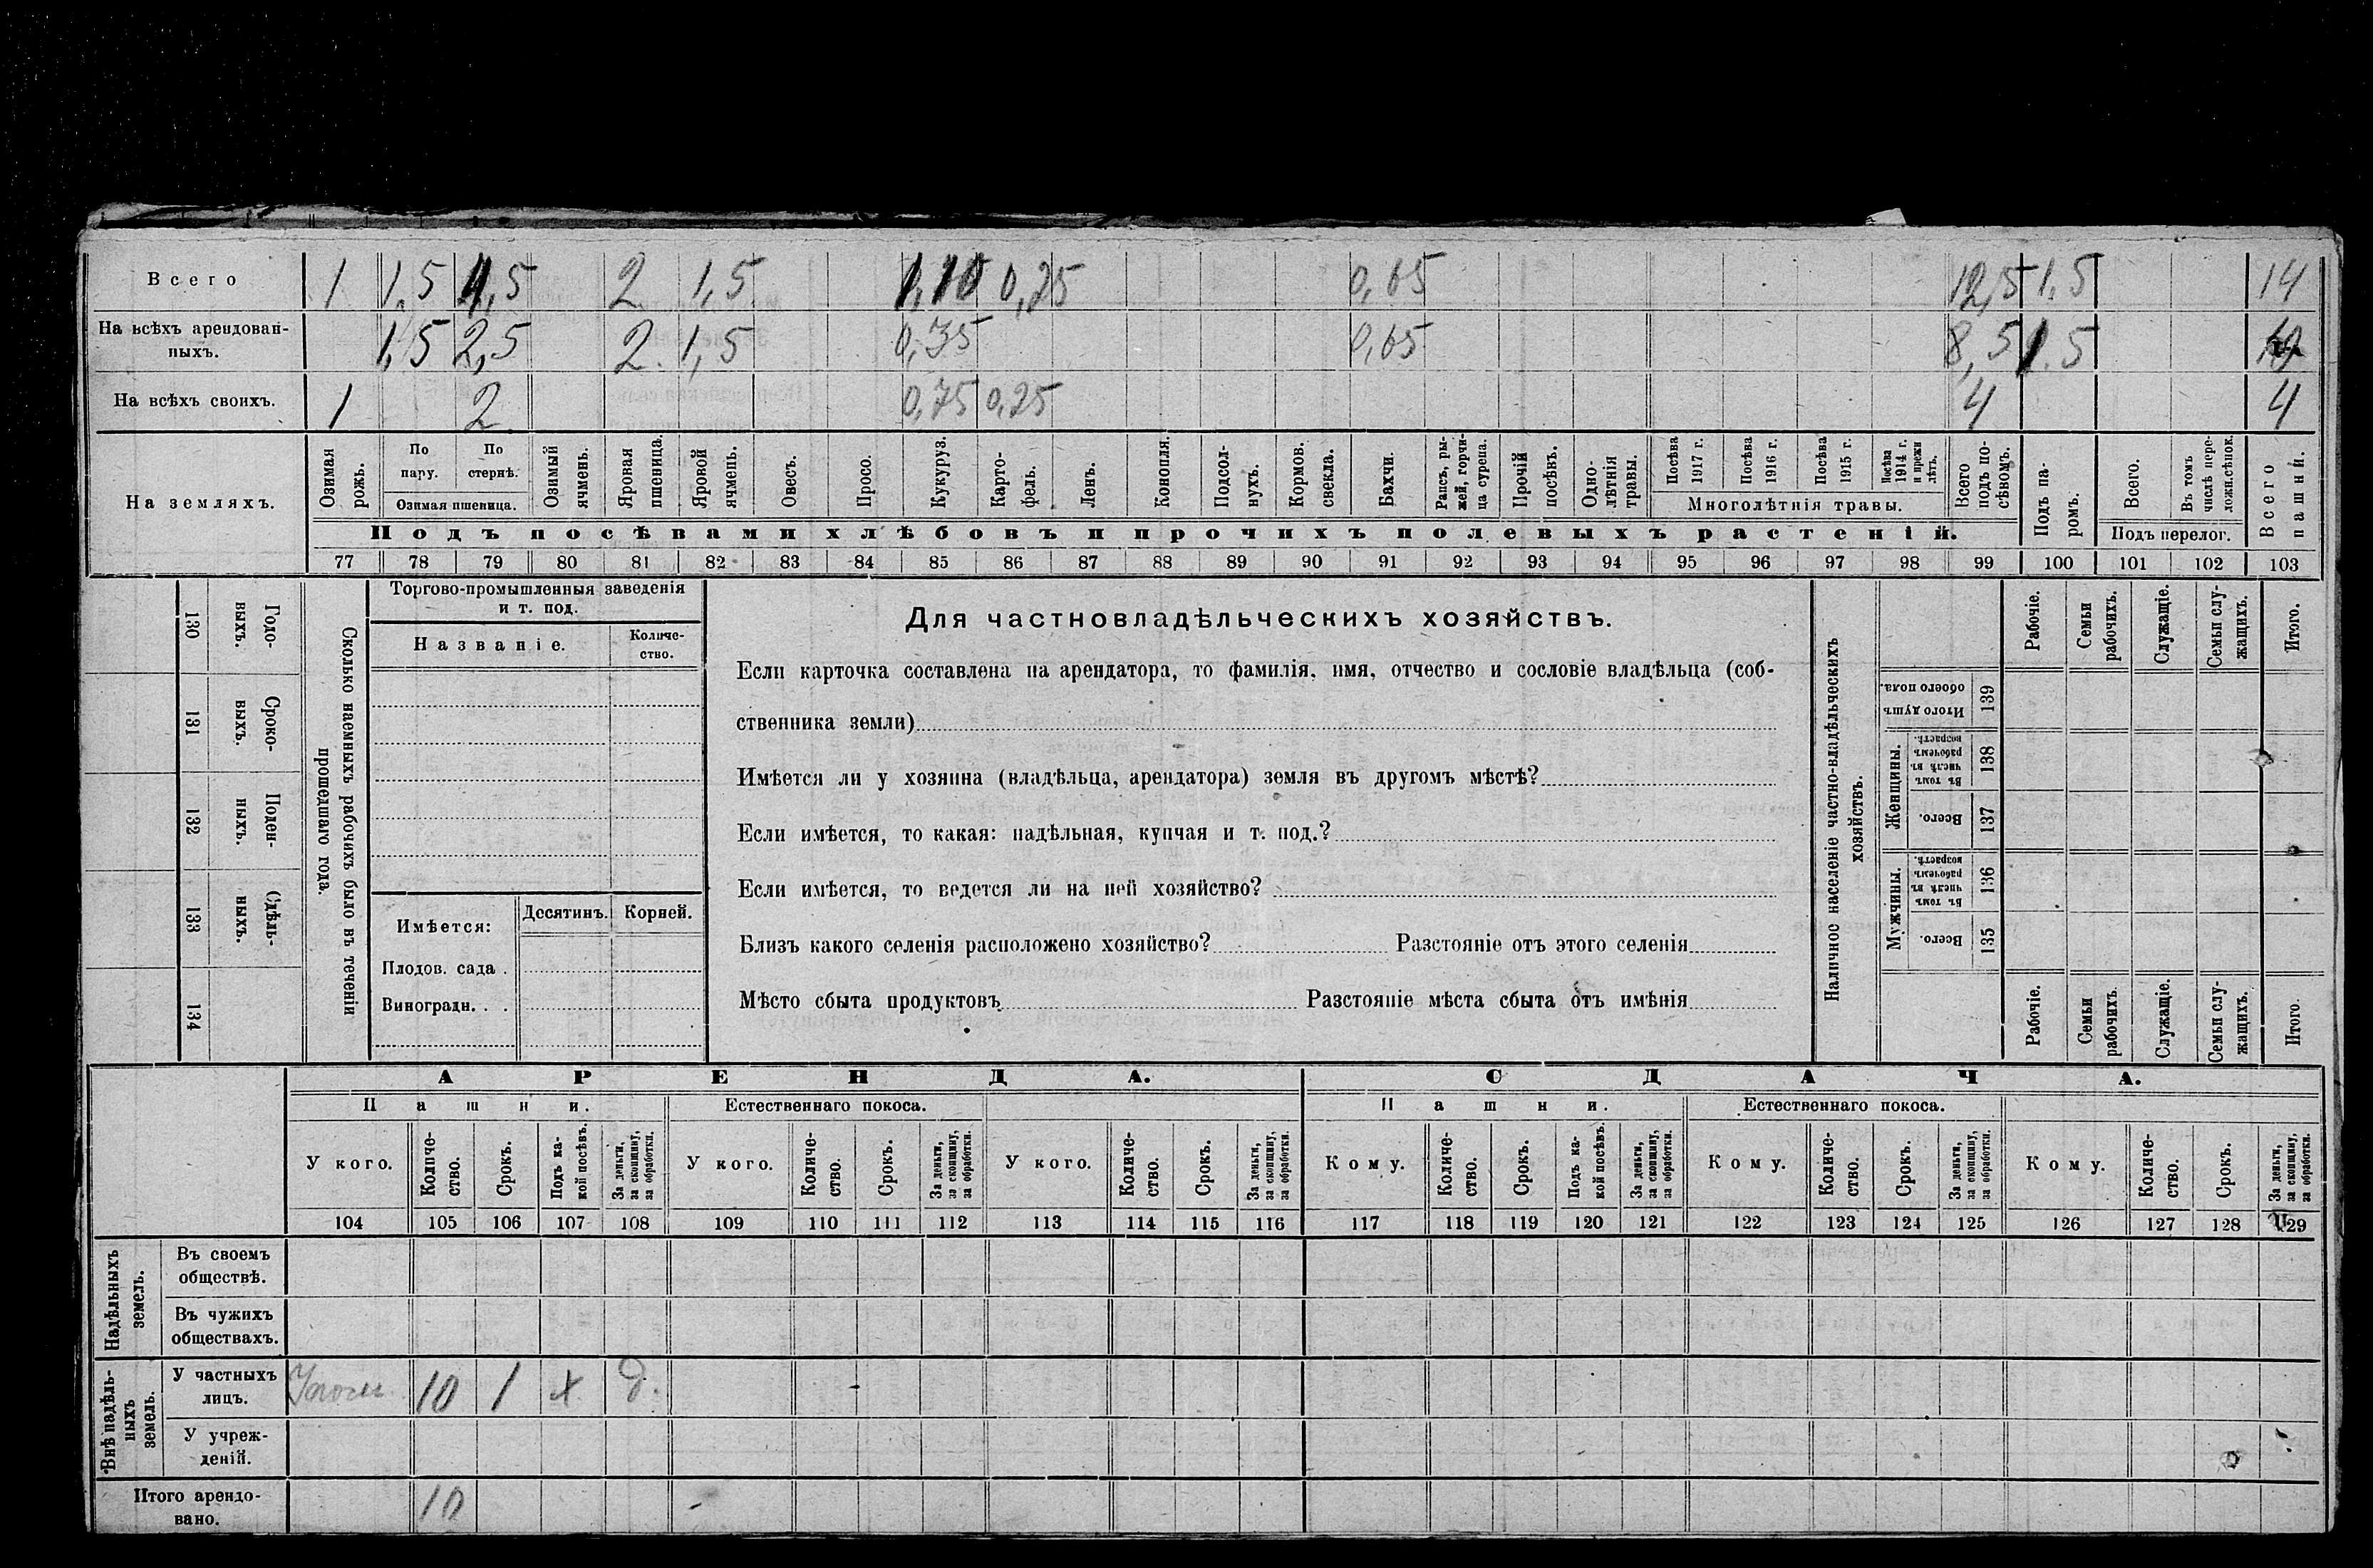 Всего 1 1,5 4,5 2 1,5 1,10 0,25 0,65 12,5 1,5 14
На всѣхъ арендован-
ныхъ. 1,5 2,5 2. 1,5 0,35 0,65 8,5 1.5 10
На всѣхъ своихъ. 1 2 0,75 0,25 4 4
На земляхъ.
Озимая
рожь.
По
пару.
По
стернѣ.
Озимая пшеница.
Озимый
ячмень.
Яровая
пшеница.
Яровой
ячмень.
Овесъ.
Просо.
Кукуруз.
Карто-
фель.
Ленъ.
Конопля.
Подсол-
нухъ.
Кормов.
свекла.
Бахчи.
Рапсъ, ры-
жей, горчи-
ца сурепа.
Прочій
посѣвъ.
Одно-
лѣтнія
травы.
Посѣва
1917 г.
Посѣва
1916 г.
Посѣва
1915 г.
Посѣва
1914 г.
и прежн
лѣтъ.
Многолѣтнія травы.
Всего
подъ по-
сѣвомъ.
Подъ па-
ромъ.
Всего.
Въ томъ
числѣ пере-
ложн.сѣнок.
Подъ перелог.
Всего
пашни.
Подъ посѣвами хлѣбовъ и прочихъ полевыхъ растеній.
77 78 79 80 81 82 83 84 85 86 87 88 89 90 91 92 93 94 95 96 97 98 99 100 101 102 103
130 Годо-
выхъ.
131 Сроко-
выхъ.
132 Поден-
ныхъ.
133 Сдѣль-
ныхъ.
134
Сколько наемныхъ рабочихъ было въ теченіи
прошедшаго года.
Торгово-промышленныя заведенія
и т. под.
Названіе.
Количе-
ство.
Имѣется: Десятинъ. Корней.
Плодов. сада .
Виноградн. . .
Для частновладѣльческихъ хозяйствъ.
Если карточка составлена на арендатора, то фамилія, имя, отчество и сословіе владѣльца (соб-
ственника земли)
Имѣется ли у хозяина (владѣльца, арендатора) земля въ другомъ мѣстѣ?
Если имѣется, то какая: надѣльная, купчая и т. под.?
Если имѣется, то ведется ли на ней хозяйство?
Близъ какого селенія расположено хозяйство? Разстояніе отъ этого селенія
Мѣсто сбыта продуктовъ Разстояніе мѣста сбыта отъ имѣнія
Наличное населеніе частно-владѣльческихъ
хозяйствъ.
Рабочіе.
Семьи
рабочихъ.
Служащіе.
Семьи слу-
жащихъ.
Итого.
Итого душъ
обоего пола.
139
Женщины.
Въ томъ
числѣ въ
рабочемъ
возрастѣ.
138
Всего.
137
Мужчины.
Въ томъ
числѣ въ
рабочемъ
возрастѣ.
136
Всего.
135
Рабочіе.
Семьи
рабочихъ.
Служащіе.
Семьи слу-
жащихъ.
Итого.
АРЕНДА. СДАЧА.
Пашни. Естественнаго покоса. Пашни. Естественнаго покоса.
У кого.
Количе-
ство.
Срокъ.
Подъ ка-
кой посѣвъ.
За деньги,
за скопщину,
за обработки.
У кого.
Количе-
ство.
Срокъ.
За деньги,
за скопщину,
за обработки.
У кого.
Количе-
ство.
Срокъ.
За деньги,
за скопщину,
за обработки.
Кому.
Количе-
ство.
Срокъ.
Подъ ка-
кой посѣвъ.
За деньги,
за скопщину,
за обработки.
Кому.
Количе-
ство.
Срокъ.
За деньги,
за скопщину,
за обработки.
Кому.
Количе-
ство.
Срокъ.
За деньги,
за скопщину,
за обработки.
104 105 106 107 108 109 110 111 112 113 114 115 116 117 118 119 120 121 122 123 124 125 126 127 128 129
Надѣльныхъ
земель.
Въ своемъ
обществѣ.
Въ чужихъ
обществахъ.
Внѣ надѣль-
ныхъ
земель.
У частныхъ
лицъ. 10 1 х д.
У учреж-
деній.
Итого арендо-
вано. 10